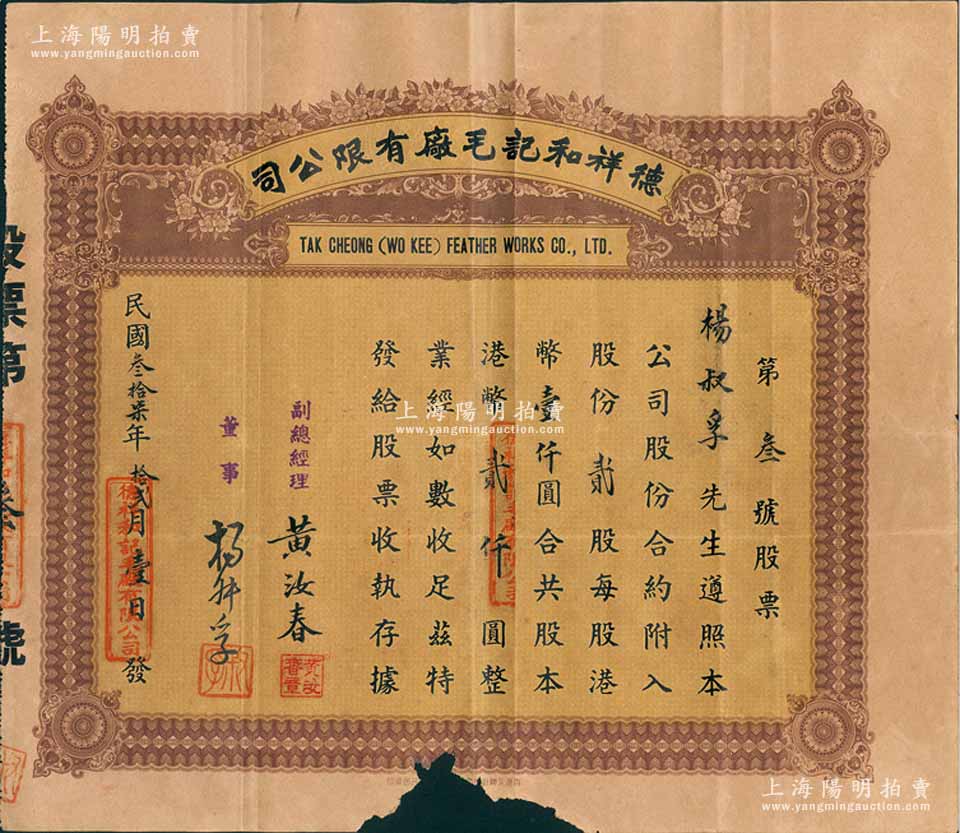 上海陽明拍賣
www.yangmingauction.com
德祥和記毛廠有限公司
TAK CHEONG (WO KEE) FEATHER WORKS CO., LTD.
第叁號股票
楊叔孚先生遵照本
公司股份合約附入
股份貳股每股港
幣壹仟圓合共股本
港幣貳仟圓整
業經如數收足茲特
發給股票收執存據
副總經理 黃汝春
董事 楊叔孚
民國叁拾柒年拾貳月壹日發
德祥和記毛廠有限公司
股票第
號
上海陽明拍賣
www.yangmingauction.com
上海陽明拍賣
www.yangmingauction.com